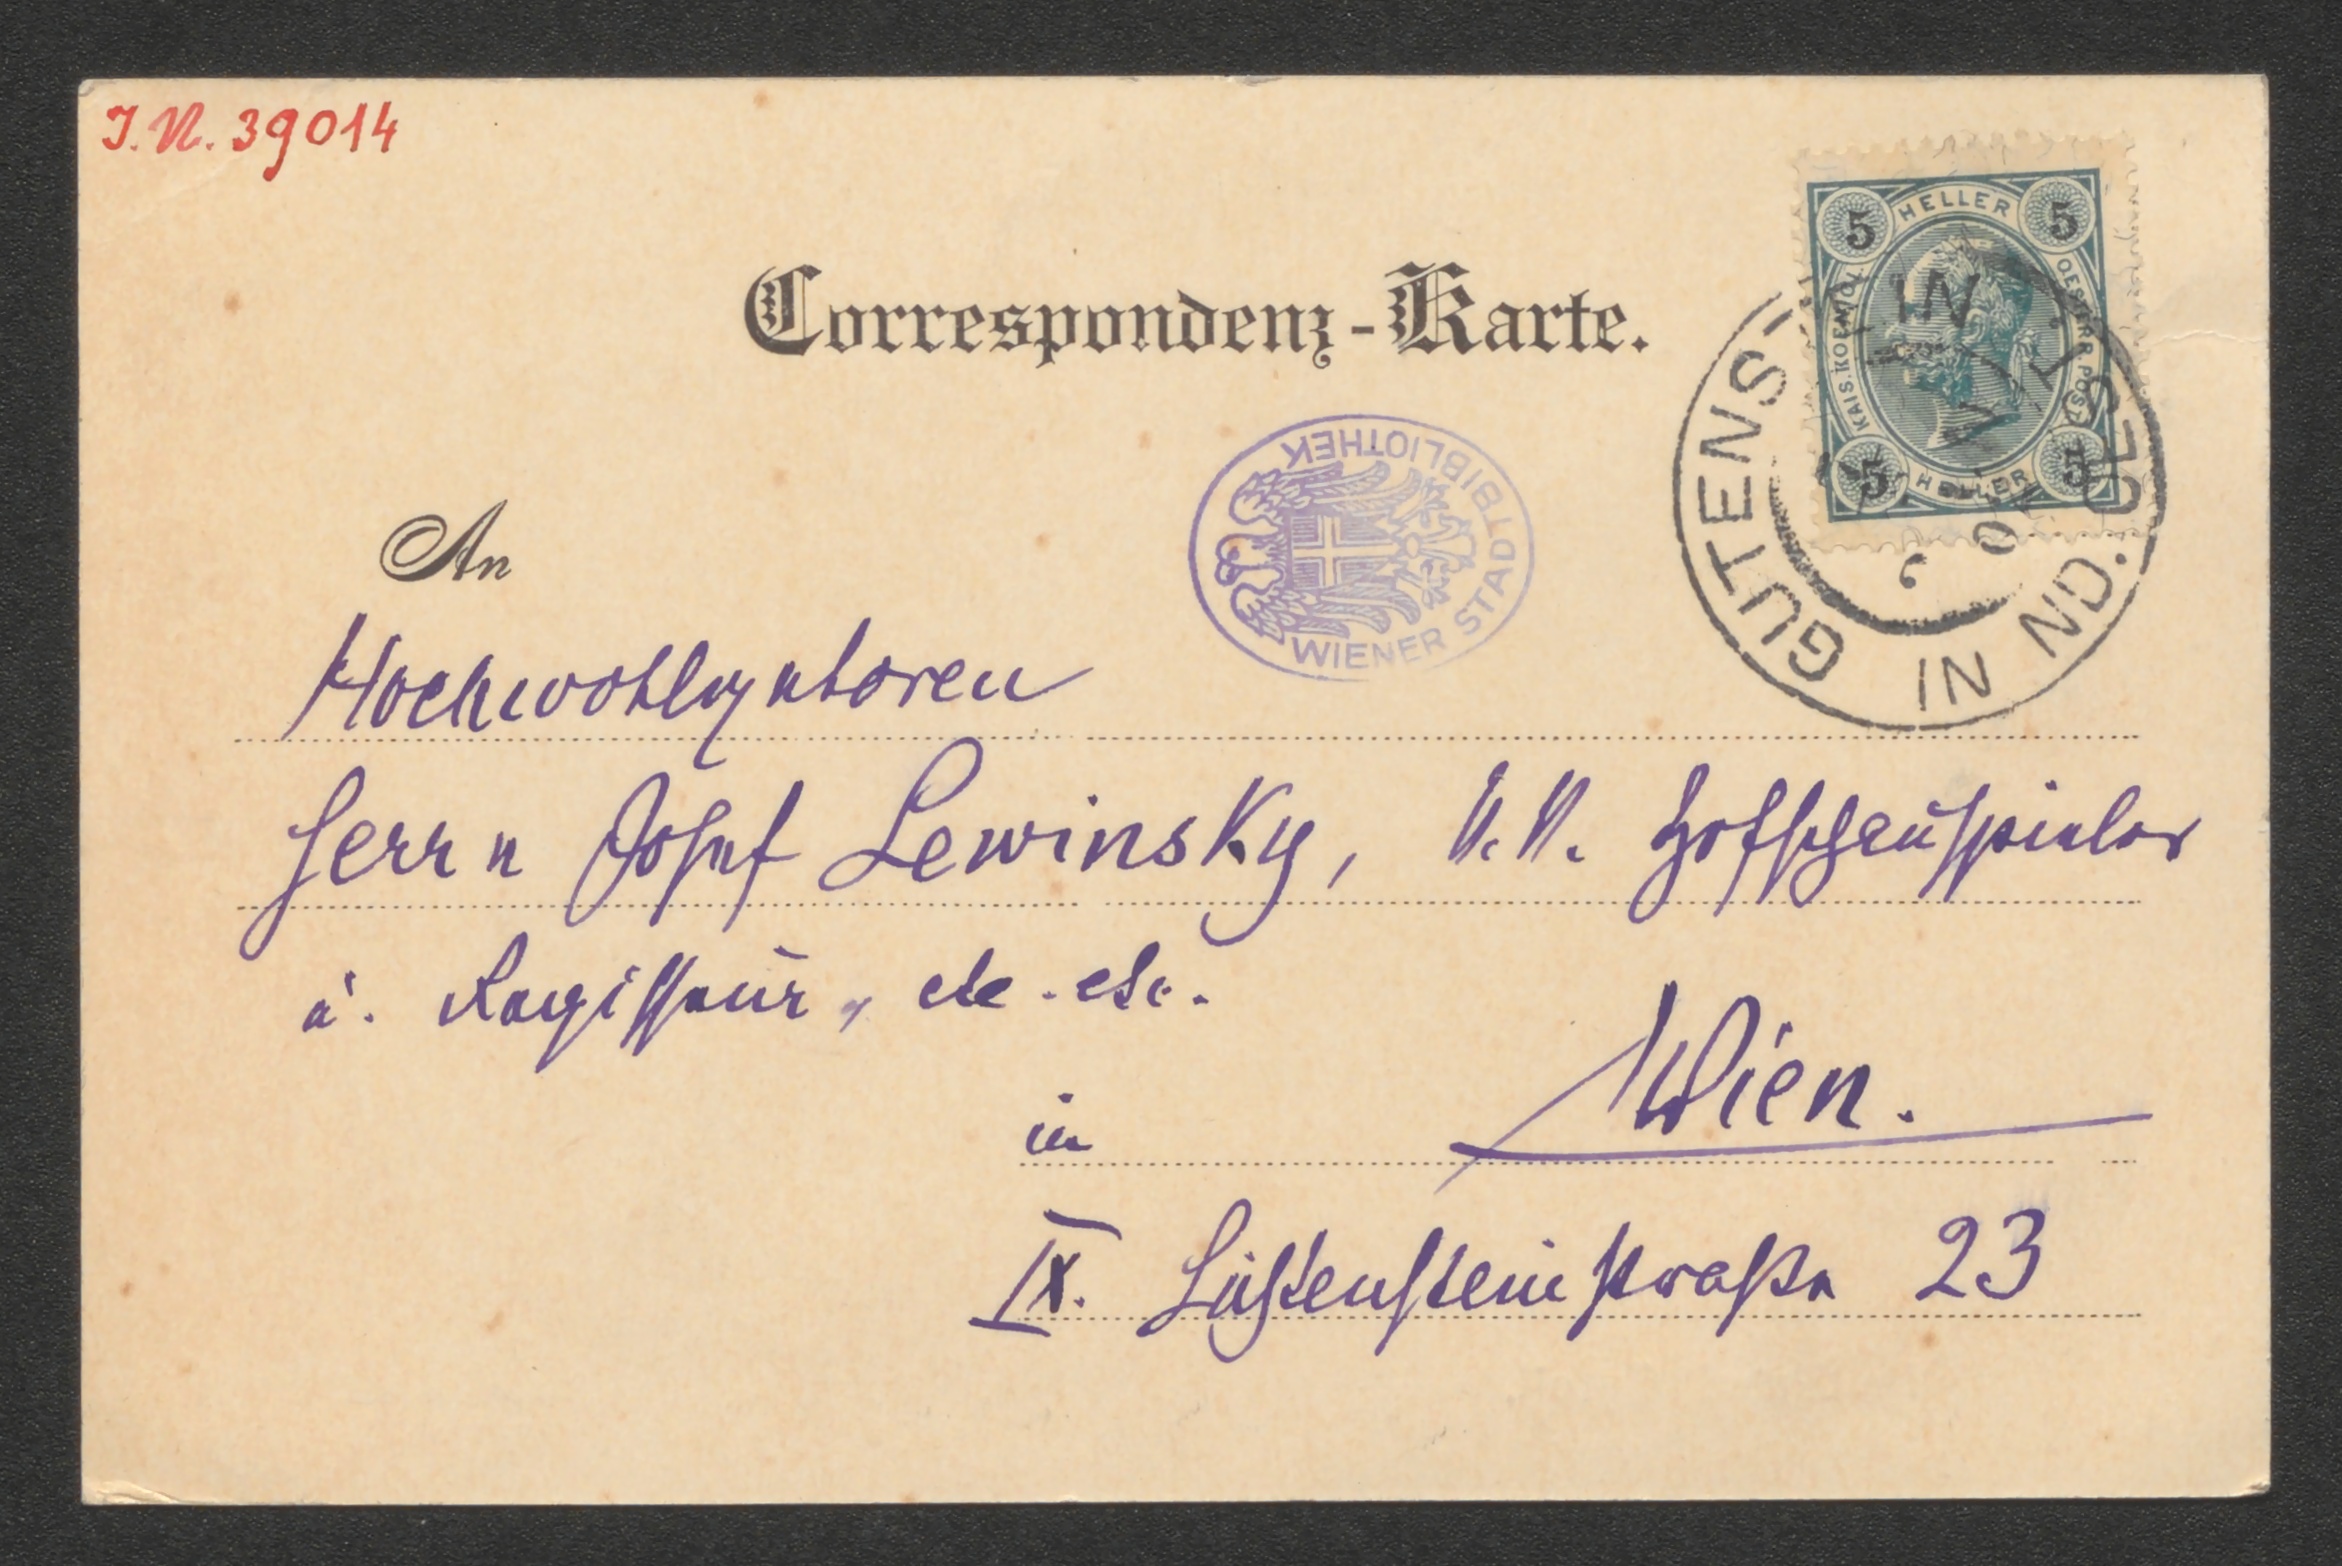 J.N. 39014
Correspondenz-Karte.
5 HELLER 5
KAIS. KOENIGL.
OESTERR. POST
5 HELLER 5
GUTENSTEIN
IN ND. OEST.
WIENER STADTBIBLIOTHEK
An
Hochwohlgeboren
Herrn Josef Lewinsky, k. k. Hofschauspieler
u. Regisseur, etc. etc.
in Wien.
IX. Lichtensteinstraße 23